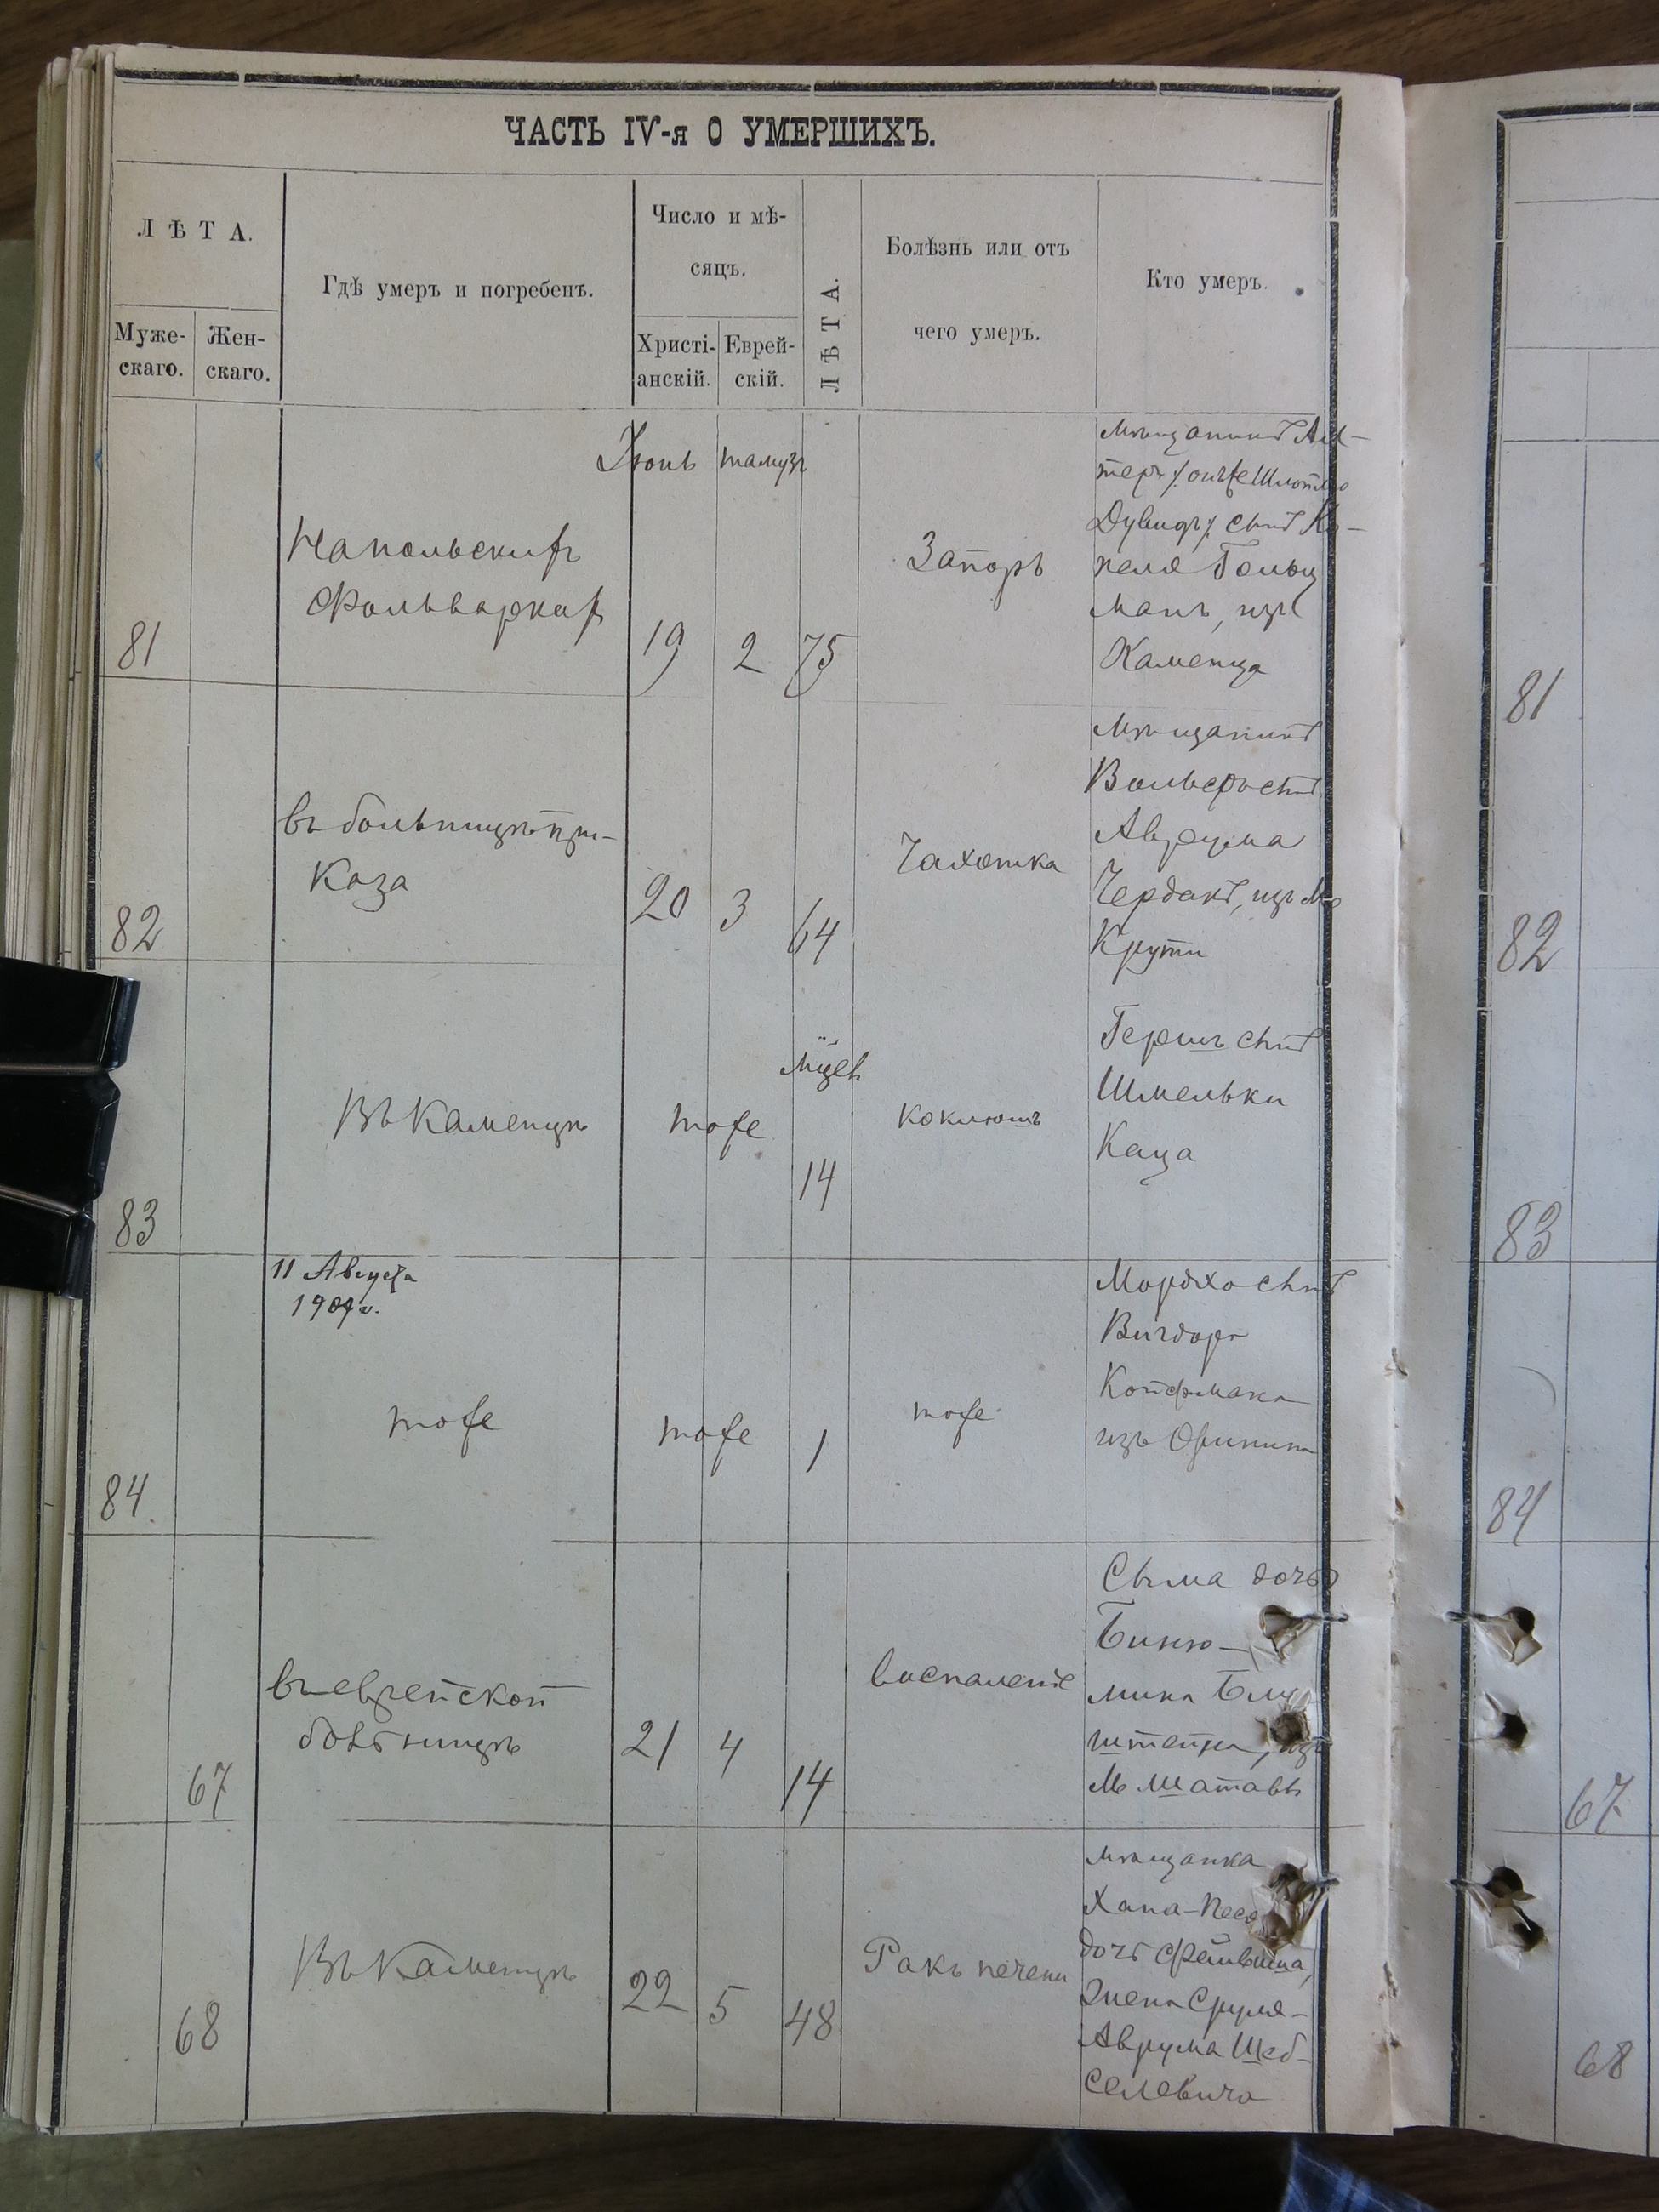 ЧАСТЬ IV-я О УМЕРШИХЪ.
ЛѢТА.
Муже-
скаго.
Жен-
скаго.
Гдѣ умеръ и погребенъ.
Число и мѣ-
сяцъ.
Христі-
анскій.
Еврей-
скій.
ЛѢТА.
Болѣзнь или отъ
чего умеръ.
Кто умеръ.
Іюнь тамузъ
81
На польскихъ
фольваркахъ
19
2
75
Запоръ
мѣщанинъ Аль-
теръ /: онъ же
Дувидъ :/ сынъ Ко-
пеля Гольц
манъ, изъ
Каменца
81
82
въ больницѣ при-
каза
20
3
64
Чахотка
мѣщанинъ
Вольфъ сынъ
Аврума
Чердакъ, изъ м
Крути
82
83
Въ Каменцѣ
тоже
мѣсц
14
коклюшъ
Гершъ сынъ
Шмельки
Каца
83
11 Августа
1904 г.
84
тоже
тоже
1
тоже
Мордхо сынъ
Вигдора
Койфмана
изъ Оринина
84
67
въ еврейской
больницѣ
21
4
14
воспаленіе
Сыма дочь
Биню-
мина Блу
штейна, изъ
м Шатавы
67
68
Въ Каменцѣ
22
5
48
Ракъ печени
мѣщанка
Хана-Песя
дочь Файвиша,
жена Сруля-
Аврума Шеб-
селевича
68